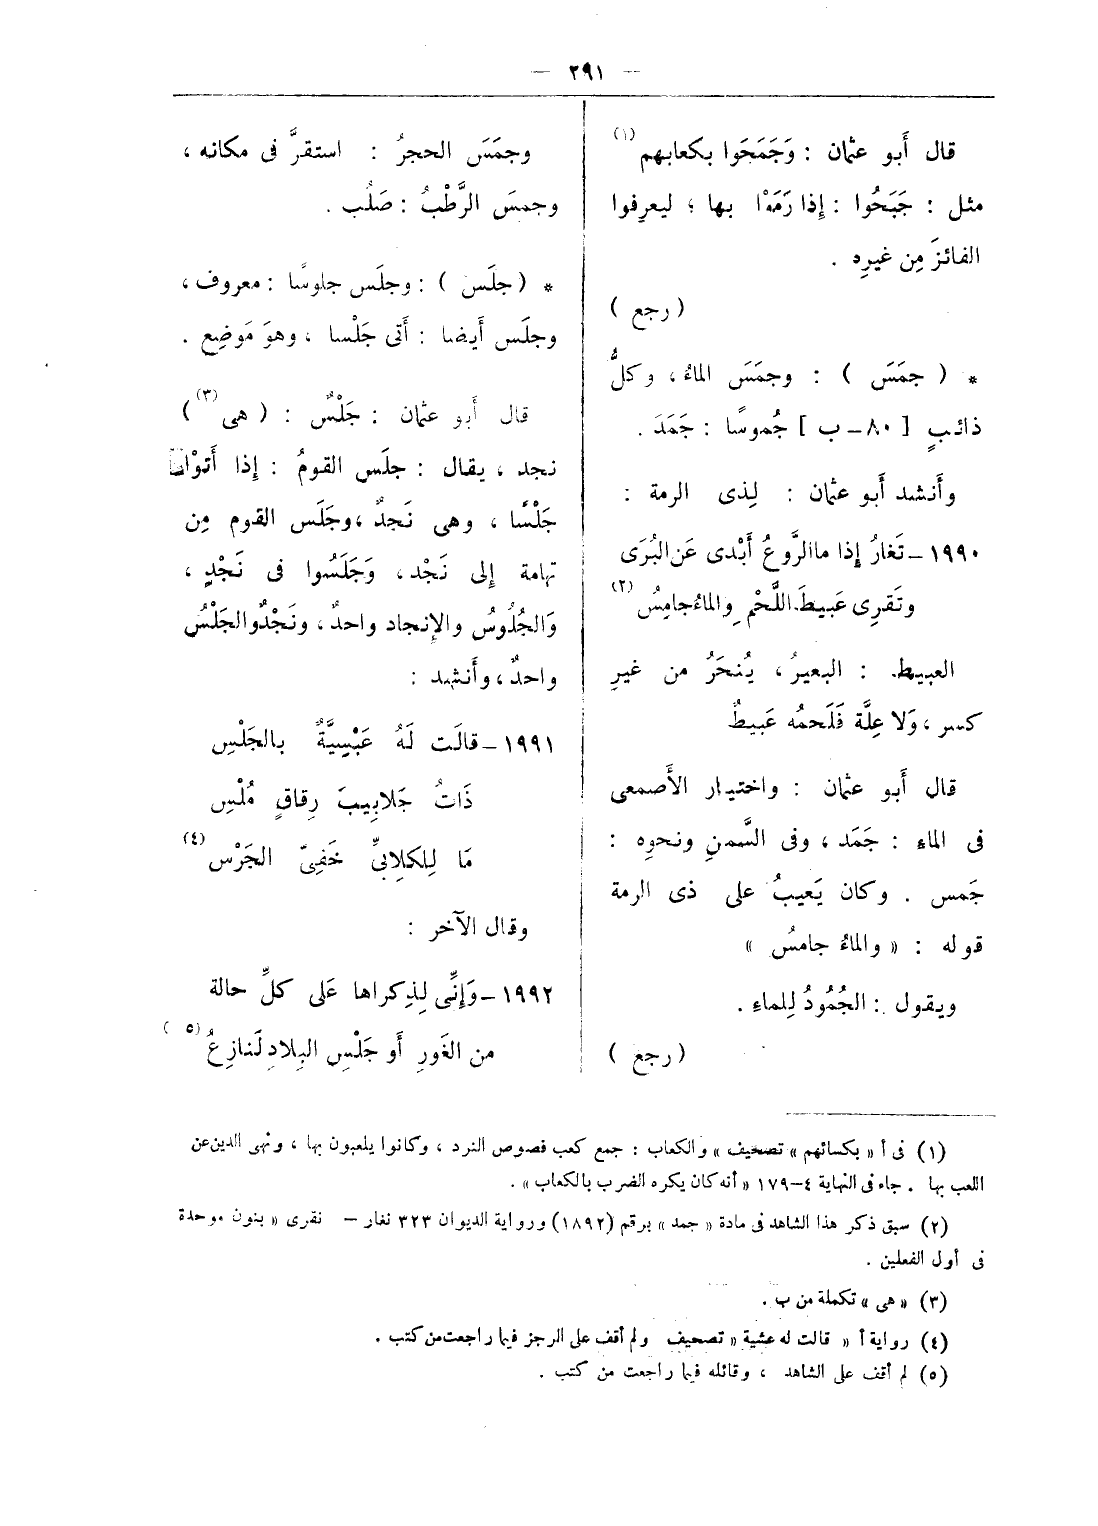 — ٢٩١ —
قال أَبو عثمان : وَجَمَحَوا بكعابهم (١)
مثل : جَبَحُوا : إِذا رَمَوْا بها ؛ ليعرِفوا
الفائزَ مِن غيرِه .
( رجع )
* ( جمَسَ ) : وجمَسَ الماءُ ، وكلُّ
ذائبٍ [ ٨٠ – ب ] جُموسًا : جَمَدَ .
وأَنشد أَبو عثمان : لِذى الرمة :
١٩٩٠ – تَغارُ إِذا ماالرَّوعُ أَبْدى عَن البُرَى
وتَقرِى عَبيطَ اللَّحْمِ والماءُ جامِسُ (٢)
العبيط : البعيرُ ، يُنحَرُ من غيرِ
كسرٍ ، وَلا عِلَّة فَلَحمُه عَبيطٌ
قال أَبو عثمان : واختيار الأَصمعى
فى الماءِ : جَمَد ، وفى السَّمنِ ونحوِه :
جَمس . وكان يَعيبُ على ذى الرمة
قوله : « والماءُ جامسُ »
ويقول : الجُمُودُ لِلماءِ .
( رجع )
وجمَسَ الحجرُ : استقرَّ فى مكانه ،
وجمسَ الرَّطْبُ : صَلُب .
* ( جلَسَ ) : وجلَس جلوسًا : معروف ،
وجلَس أَيضا : أَتى جَلْسا ، وهوَ مَوضِع .
قال أَبو عثمان : جَلْسٌ : ( هى (٣) )
نجد ، يقال : جلَس القومُ : إِذا أَتَوْا
جَلْسًا ، وهى نَجدٌ ، وجَلَس القوم مِن
تهامة إِلى نَجْد ، وَجَلَسُوا فى نَجْدٍ ،
وَالجُلُوسُ والإِنجاد واحدٌ ، ونَجْدٌ والجَلْسُ
واحدٌ ، وأَنشد :
١٩٩١ – قالَت لَهُ عَبْسِيَّةٌ بالجَلْسِ
ذَاتُ جَلابِيبَ رِقاقٍ مُلْسِ
مَا لِلكلابىِّ خَفِىّ الجَرْس (٤)
وقال الآخر :
١٩٩٢ – وَإِنِّى لِذِكراها عَلى كلِّ حالة
من الغَورِ أَو جَلْسِ البِلادِ لَنازِعُ (٥)
(١) فى أ « بكسائهم » تصحيف » والكعاب : جمع كعب فصوص النرد ، وكانوا يلعبون بها ، ونهى الدين عن
اللعب بها . جاء فى النهاية ٤–١٧٩ « أنه كان يكره الضرب بالكعاب » .
(٢) سبق ذكر هذا الشاهد فى مادة « جمد » برقم (١٨٩٢) ورواية الديوان ٣٢٣ نغار – نقرى « بنون موحدة
فى أول الفعلين .
(٣) « هى » تكملة من ب .
(٤) رواية أ « قالت له عشية « تصحيف ولم أقف على الرجز فيما راجعت من كتب .
(٥) لم أقف على الشاهد ، وقائله فيما راجعت من كتب .